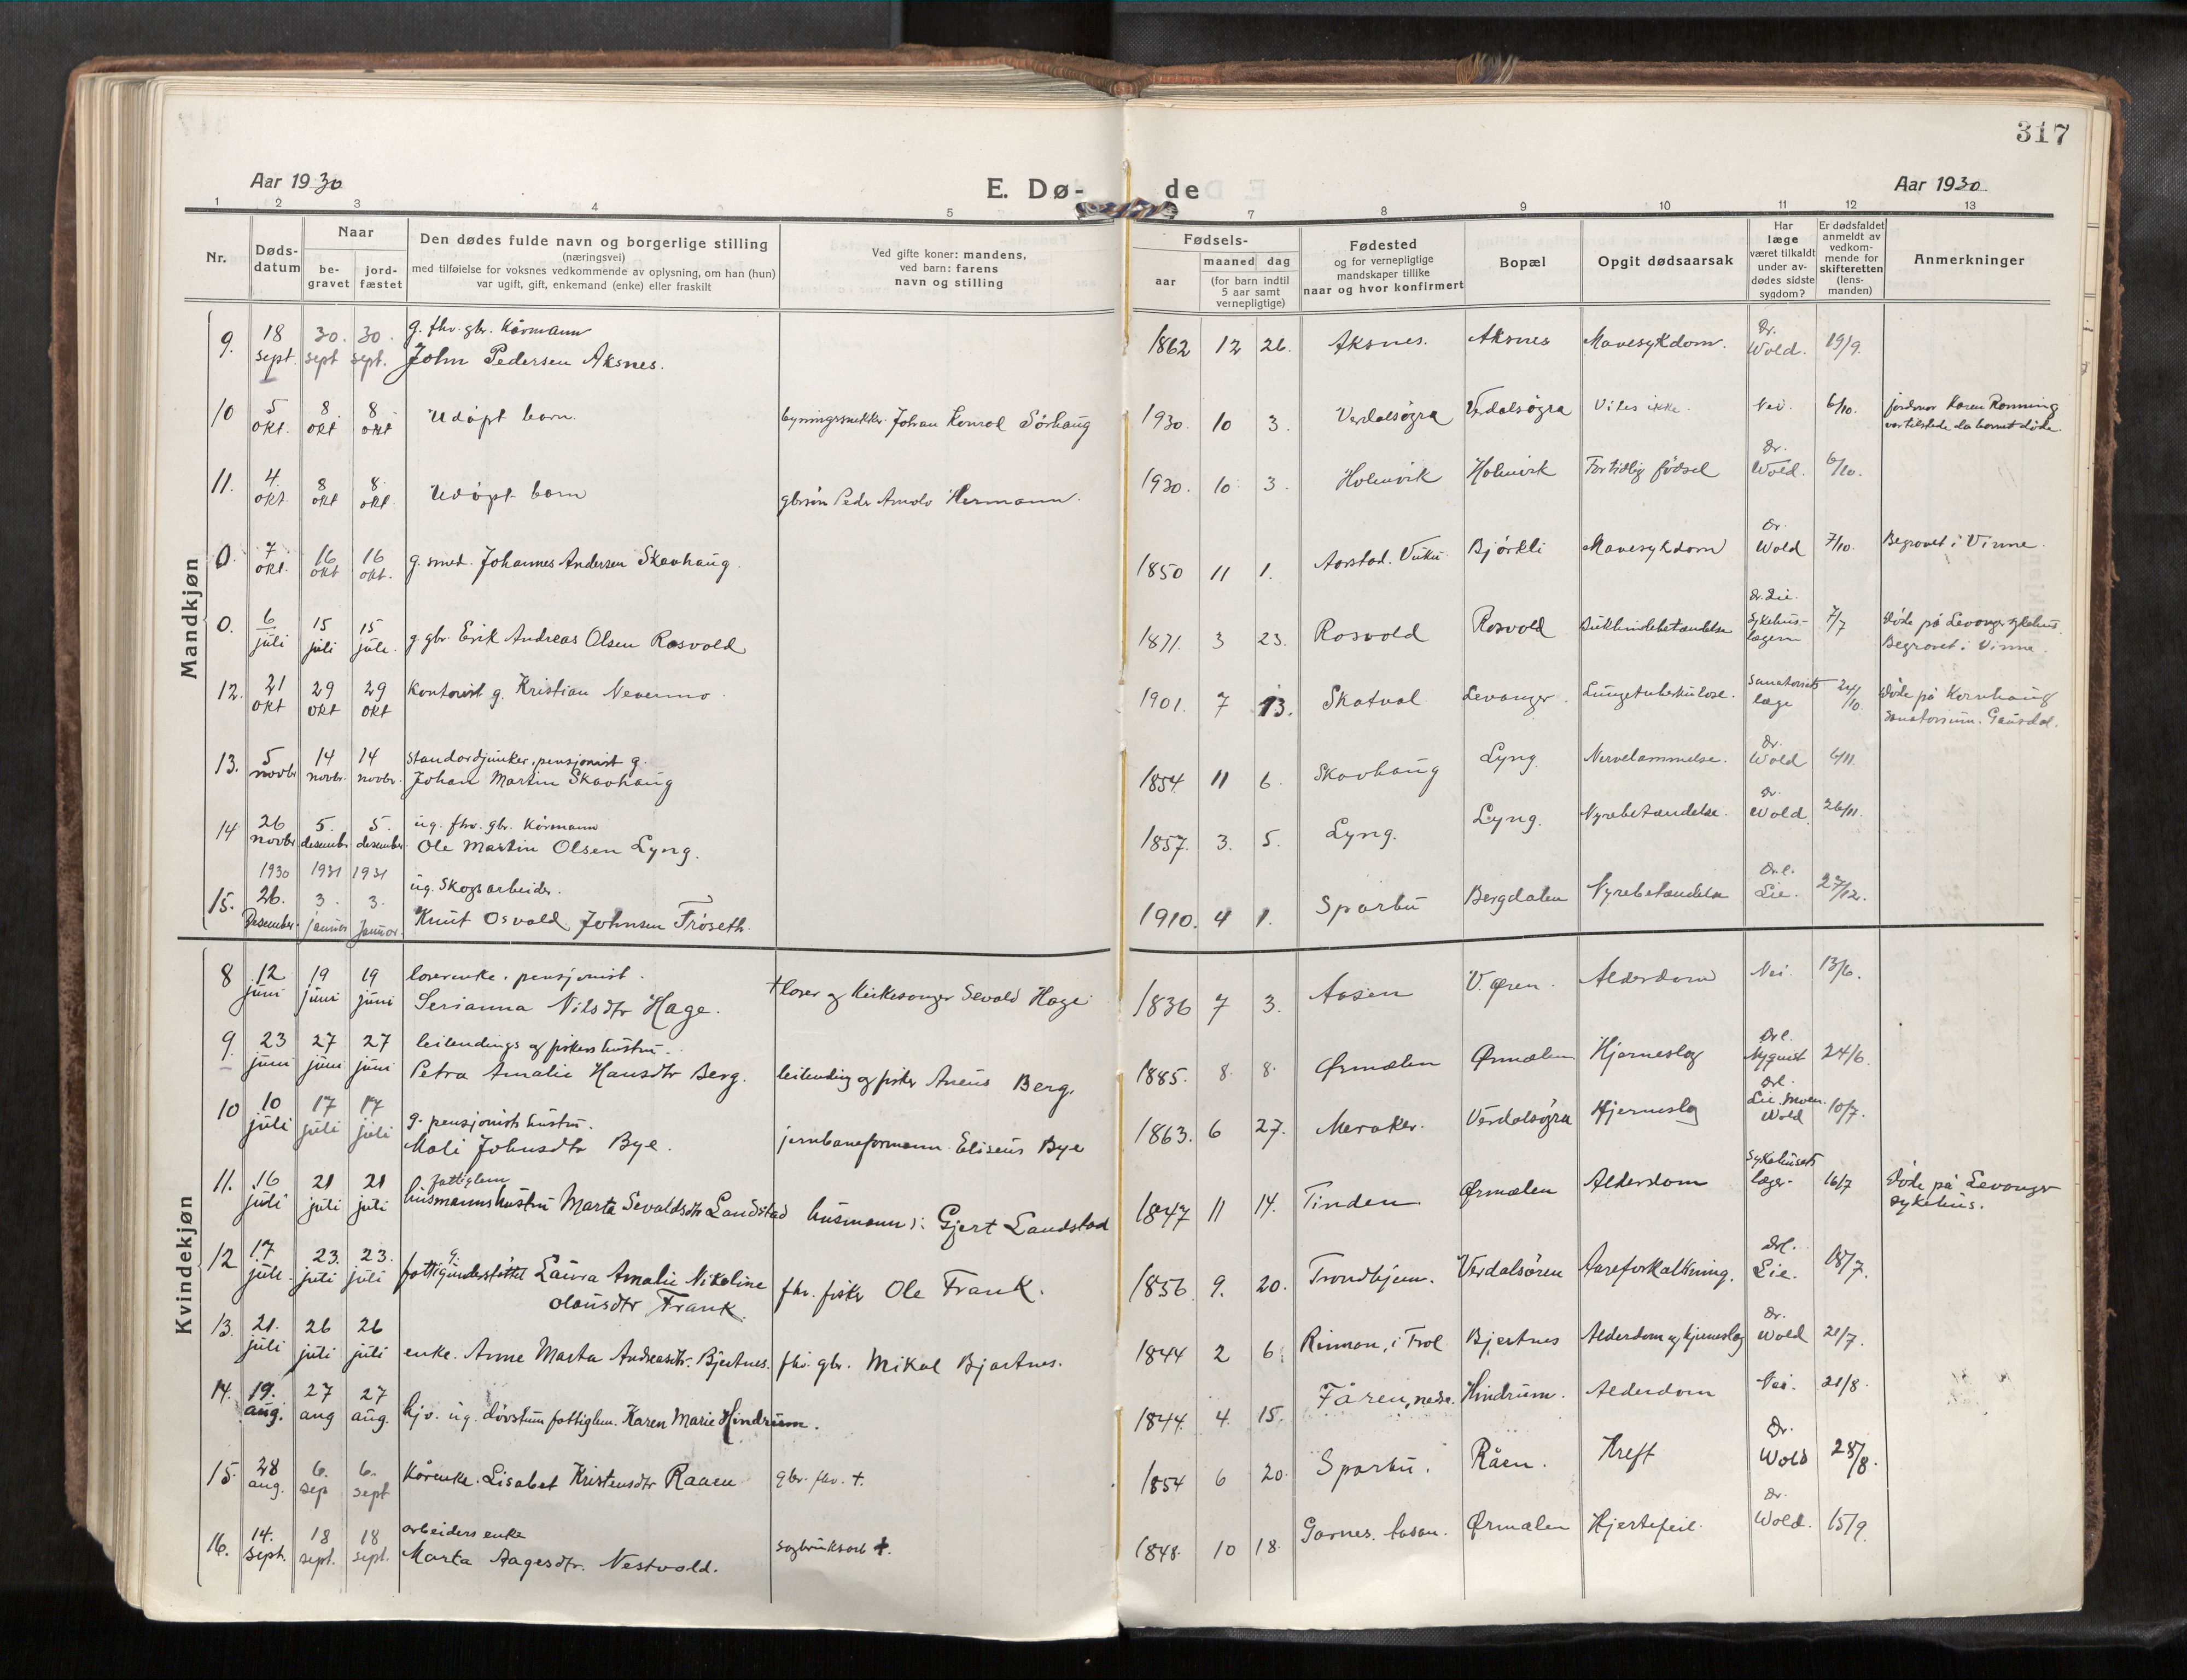 317
Aar 1930
E. Dø-
de
Aar 1930
1 2 3 4 5
7 8 9 10 11 12 13
Nr.
Døds-
datum
Naar
be-
gravet
jord-
fæstet
Den dødes fulde navn og borgerlige stilling
(næringsvei)
med tilføielse for voksnes vedkommende av oplysning, om han (hun)
var ugift, gift, enkemand (enke) eller fraskilt
Ved gifte koner: mandens,
ved barn: farens
navn og stilling
Fødsels-
aar
maaned dag
(for barn indtil
5 aar samt
vernepligtige)
Fødested
og for vernepligtige
mandskaper tillike
naar og hvor konfirmert
Bopæl
Opgit dødsaarsak
Har
læge
været tilkaldt
under av-
dødes sidste
sygdom?
Er dødsfaldet
anmeldt av
vedkom-
mende for
skifteretten
(lens-
manden)
Anmerkninger
Mandkjøn
9. 18 sept. 30. sept 30. sept. g. fhv. gbr. Kårmann
John Pedersen Aksnes.
1862 12 26. Aksnes. Aksnes Mavesykdom. Dr. Wold. 19/9.
10 5 okt. 8 okt 8 okt Udøpt barn. bygningssnekker Johan Konrad Sørhaug
1930. 10 3. Verdalsøra Verdalsøra Vites ikke. Nei. 6/10. jordmor Karen Rønning
var tilstede da barnet døde.
11. 4. okt 8 okt 8. okt. Udøpt barn gbrsøn Peder Arnolv Hermann.
1930. 10 3. Holmvik Holmvik For tidlig fødsel Dr. Wold. 6/10.
0. 7 okt. 16 okt 16 okt. g. smed. Johannes Andersen Skavhaug.
1850 11 1. Aarstad. Vuku. Bjørkli Mavesykdom Dr. Wold 7/10. Begravet i Vinne.
0. 6 juli 15 juli 15 juli. g gbr. Erik Andreas Olsen Rosvold
1871. 3 23. Rosvold Rosvold Bukhindebetændelse dr. Lie. Sykehus-
lægern 7/7 Døde på Levanger sykehus.
Begravet i Vinne.
12. 21 okt 29 okt 29 okt kontorist g. Kristian Nevermo.
1901. 7 13. Skatval Levanger. Lungetuberkulose. Sanatoriets
læge 24/10. Døde på Kornhaug
sanatorium. Gausdal.
13. 5 novbr 14 novbr. 14 novbr. Standardjunker, pensjonist g.
Johan Martin Skavhaug
1854. 11 6. Skavhaug Lyng. Nervelammelse. Dr. Wold 6/11.
14 26 novbr 5. desember 5. desember ug. fhv. gbr. Kårmann
Ole Martin Olsen Lyng.
1857. 3. 5. Lyng. Lyng. Nyrebetændelse. Dr. Wold. 26/11.
1930 1931 1931
15. 26. Desember. 3. januar 3. Januar. ug. Skogsarbeider.
Knut Osvald Johnsen Trøseth.
1910. 4 1. Sparbu Bergdalen Nyrebetændelse Drl. Lie. 27/12.
Kvindekjøn
8 12 juni 19 juni 19 juni lærerenke, pensjonist.
Serianna Nilsdtr Hage. † lærer og kirkesanger Sevald Hage
1836 7 3. Aasen V. Øren. Alderdom Nei. 13/6.
9. 23 juni 27 juni 27 juni leilendings og fiskers hustru.
Petra Amalie Hansdtr Berg. leilending og fisker Aneus Berg.
1885. 8. 8. Ørmælen Ørmælen Hjerneslag Drl. Nyquist 24/6.
10 10 juli 17 juli 17 juli g. pensjonists hustru.
Mali Johnsdtr Bye. jernbaneformann Eliseus Bye
1863. 6 27. Meraker. Verdalsøra Hjerneslag Drl. Lie, Moen.
Wold 10/7.
11. 16 juli 21 juli 21 juli fattiglem
husmannshustru Marta Sevaldsdtr Landstad husmann i: Gjert Landstad
1847 11 14. Tinden. Ørmælen Alderdom Sykehusets
læger. 16/7 Døde på Levanger
sykehus.
12 17 juli. 23. juli 23. juli g.
fattigunderstøttet Laura Amalie Nikoline
Olausdtr Frank. fhv. fisker Ole Frank.
1856 9. 20. Trondhjem. Verdalsøren Aareforkalkning. Drl. Lie. 18/7.
13. 21. juli 26 juli 26 juli enke. Anne Marta Andreasdtr. Bjertnes. fhv. gbr. Mikal Bjartnes.
1844 2 6. Rinnan, i Frol Bjertnes Alderdom og hjerneslag Dr. Wold 21/7.
14. 19. aug. 27 aug 27 aug. hjv. ug. døvstum fattiglem. Karen Marie Hindrum.
1844. 4. 15. Fåren, nedre. Hindrum. Alderdom Nei. 21/8.
15. 28 aug. 6. sep 6. sept Kårenke. Lisabet Kristensdtr Raaen. gbr. fhv. †.
1854 6 20. Sparbu. Råen. Kreft Dr. Wold 28/8.
16. 14. sept. 18 sept. 18 sept. arbeiders enke
Marta Aagesdtr. Nestvold. sagbruksarb †.
1848. 10 18. Garnes. Ørmælen Hjertefeil. Dr. Wold. 15/9.